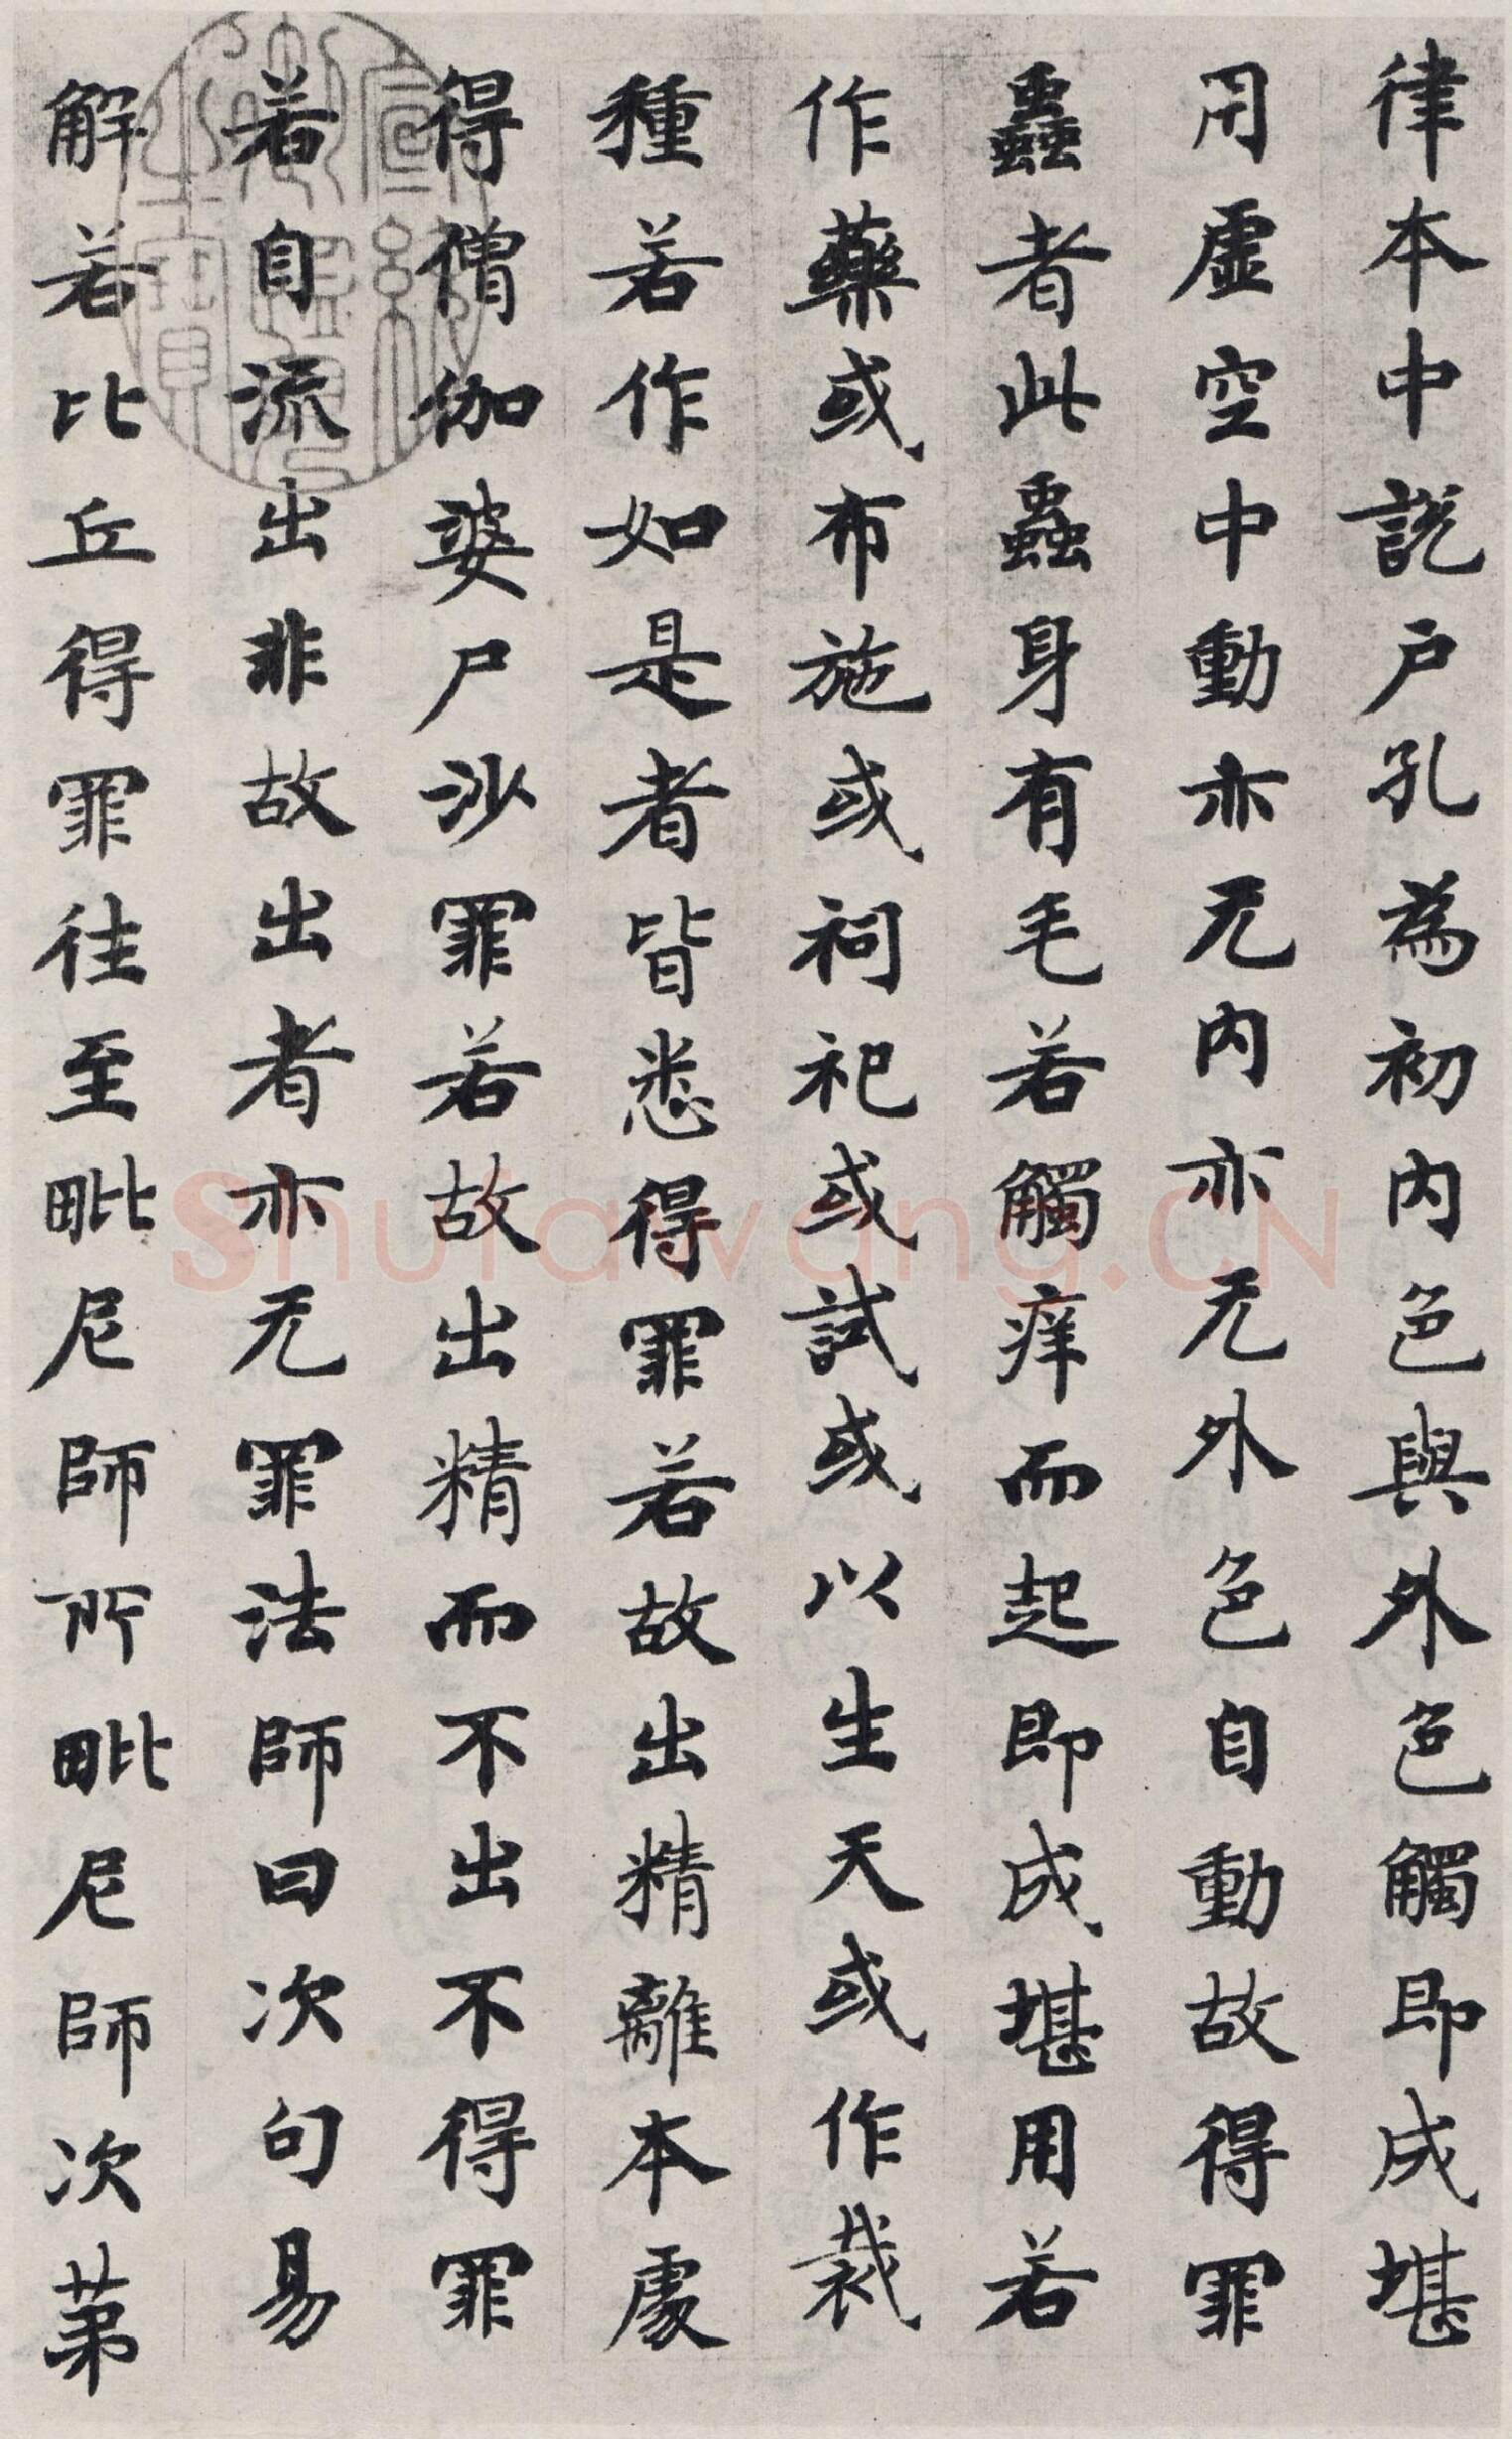 律本中説户孔為初内色與外色觸即成堪
用虛空中動亦无内亦无外色自動故得罪
蟲者此蟲身有毛若觸痒而起即成堪用若
作藥或布施或祠祀或試或以生天或作裁
種若作如是者皆悉得罪若故出精離本處
得僧伽婆尸沙罪若故出精而不出不得罪
若自流出非故出者亦无罪法師曰次句易
解若比丘得罪往至毗尼師所毗尼師次苐
Shufawang.CN